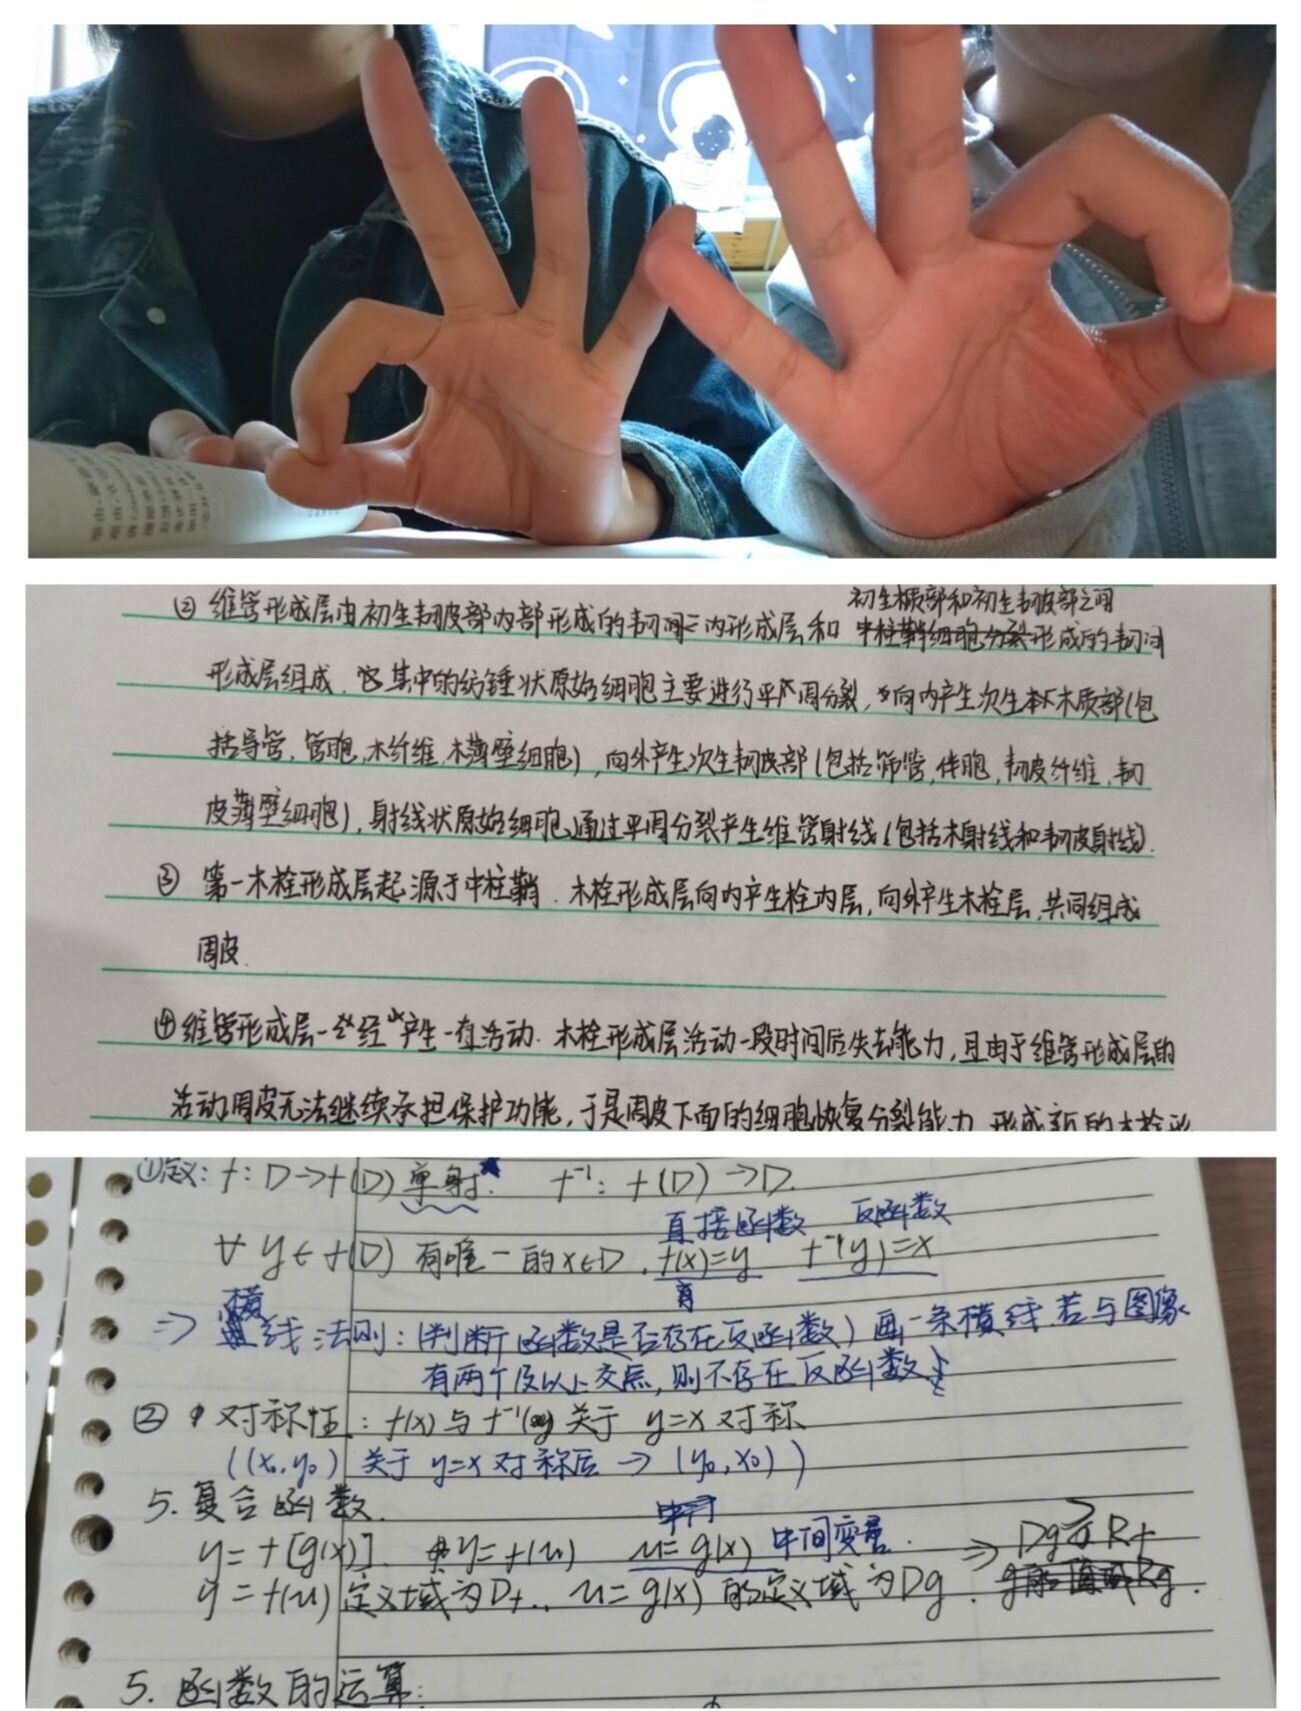 初生木质部和初生韧皮部之间
② 维管形成层由初生韧皮部内部形成的 内形成层和 中柱鞘细胞分裂形成的
形成层组成. 其中的纺锤状原始细胞主要进行平周分裂, 向内产生次生木质部(包
括导管, 管胞, 木纤维, 木薄壁细胞), 向外产生次生韧皮部(包括筛管, 伴胞, 韧皮纤维, 韧
皮薄壁细胞), 射线状原始细胞通过平周分裂产生维管射线(包括木射线和韧皮射线).
③ 第一木栓形成层起源于中柱鞘. 木栓形成层向内产生栓内层, 向外产生木栓层, 共同组成
周皮.
④ 维管形成层一经产生一直活动. 木栓形成层活动一段时间后失去能力, 且由于维管形成层的
活动周皮无法继续承担保护功能, 于是周皮下面的细胞恢复分裂能力, 形成新的木栓形
①定义: f: D→f(D) 单射★. f⁻¹: f(D)→D.
直接函数 反函数
∀ y∈f(D) 有唯一的x∈D. f(x)=y f⁻¹(y)=x
横
⇒ 线法则: (判断函数是否存在反函数) 画一条横线. 若与图像
有两个及以上交点, 则不存在反函数}
② 对称性: f(x)与f⁻¹(x)关于 y=x 对称
((x₀,y₀) 关于 y=x 对称后 → (y₀,x₀))
5. 复合函数.
y=f[g(x)]. y=f(u) u=g(x) 中间变量. ⇒
y=f(u)定义域为Df. u=g(x)的定义域为Dg.
5. 函数的运算: